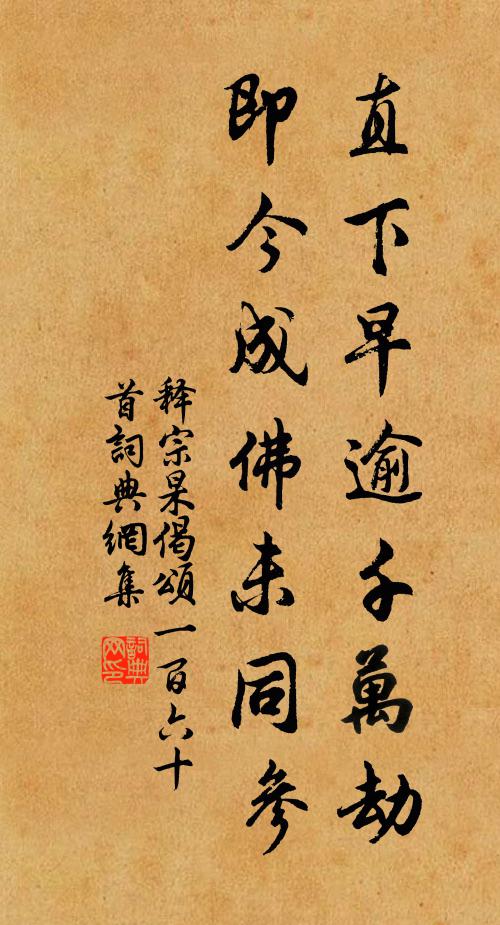 直下早逾千萬劫
即今成佛未同參
释宗杲偈頌一百六十
首詞典網集
詞典网印